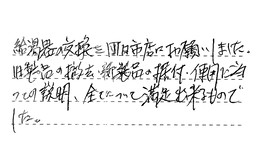 給湯器の交換を町田市店にお願いしました。
旧製品の撤去、新製品の据付、使用に当
っての説明、全てについて満足出来るもので
した。